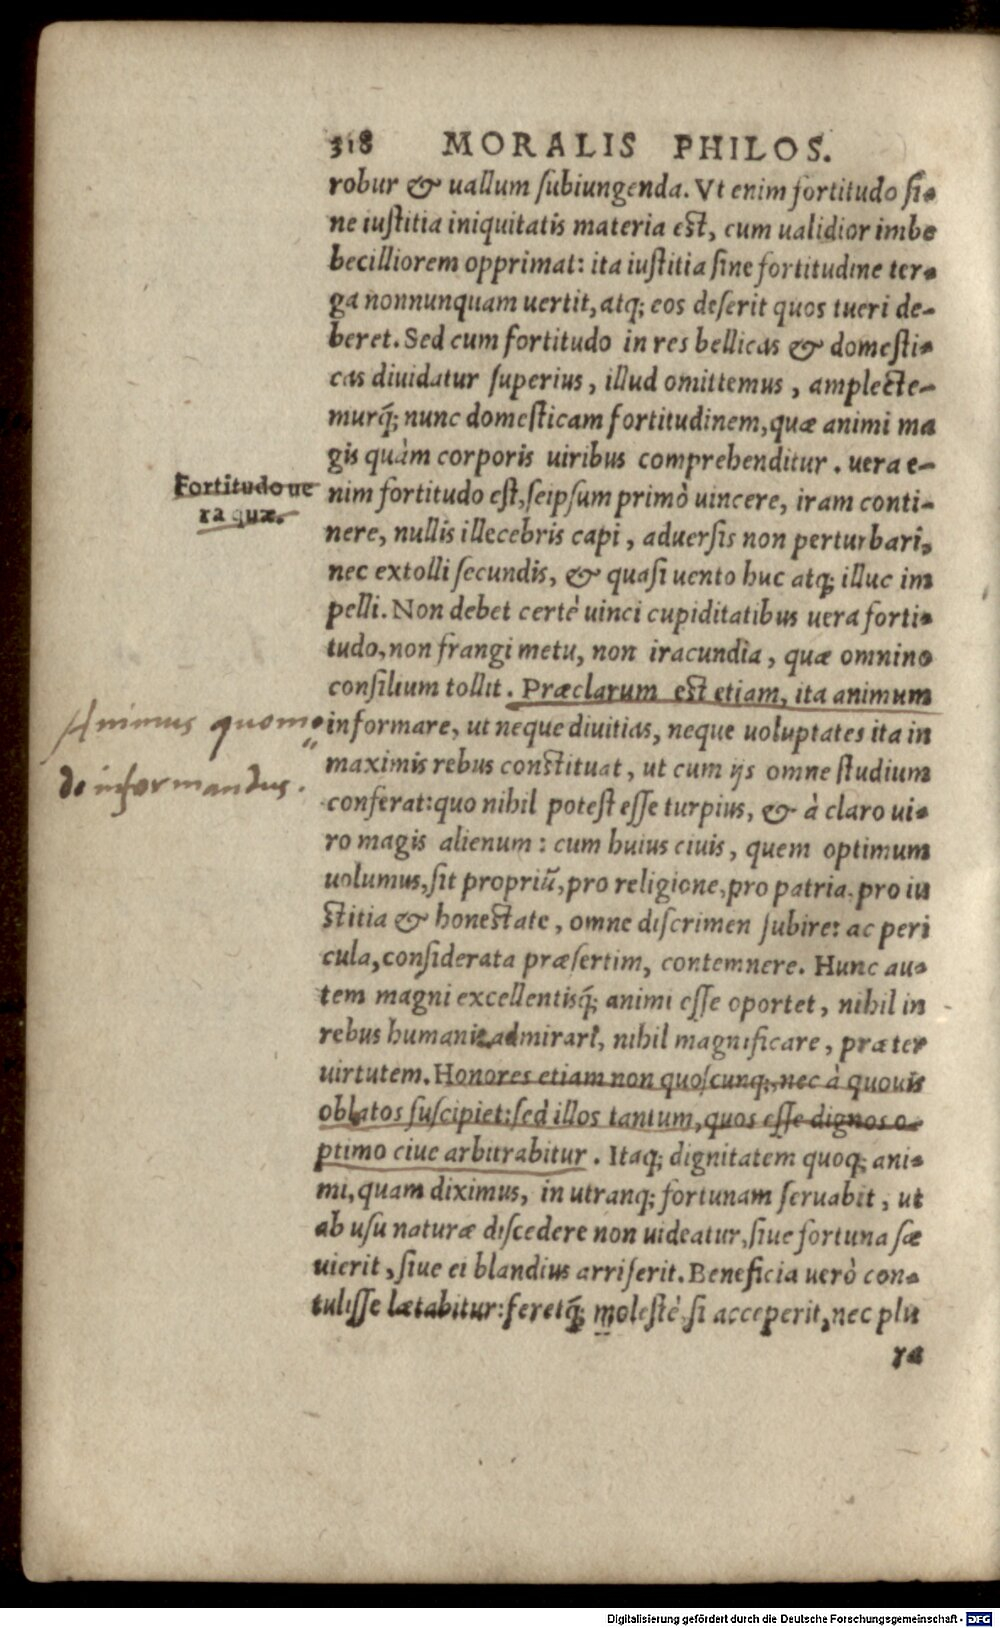 318 MORALIS PHILOS.
robur & uallum subiungenda. Vt enim fortitudo si-
ne iustitia iniquitatis materia est, cum ualidior imbe
becilliorem opprimat: ita iustitia sine fortitudine ter-
ga nonnunquam uertit, atq; eos deserit quos tueri de-
beret. Sed cum fortitudo in res bellicas & domesti-
cas diuidatur superius, illud omittemus, amplecte-
murq́; nunc domesticam fortitudinem, quæ animi ma
gis quàm corporis uiribus comprehenditur. uera e-
Fortitudo ue
ra quæ.
nim fortitudo est, seipsum primò uincere, iram conti-
nere, nullis illecebris capi, aduersis non perturbari,
nec extolli secundis, & quasi uento huc atq; illuc im
pelli. Non debet certè uinci cupiditatibus uera forti-
tudo, non frangi metu, non iracundia, quæ omnino
consilium tollit. Præclarum est etiam, ita animum
Animus quomo
do informandus.
informare, ut neque diuitias, neque uoluptates ita in
maximis rebus constituat, ut cum ijs omne studium
conferat: quo nihil potest esse turpius, & à claro ui-
ro magis alienum: cum huius ciuis, quem optimum
uolumus, sit propriũ, pro religione, pro patria, pro iu
stitia & honestate, omne discrimen subire: ac peri
cula, considerata præsertim, contemnere. Hunc au-
tem magni excellentisq́; animi esse oportet, nihil in
rebus humanis admirari, nihil magnificare, præter
uirtutem. Honores etiam non quoscunq;, nec à quouis
oblatos suscipiet: sed illos tantum, quos esse dignos o-
ptimo ciue arbitrabitur. Itaq; dignitatem quoq; ani-
mi, quam diximus, in utranq; fortunam seruabit, ut
ab usu naturæ discedere non uideatur, siue fortuna sæ
uierit, siue ei blandius arriserit. Beneficia uerò con-
tulisse lætabitur: feretq́; molestè si acceperit, nec plu
ra
Digitalisierung gefördert durch die Deutsche Forschungsgemeinschaft - DFG